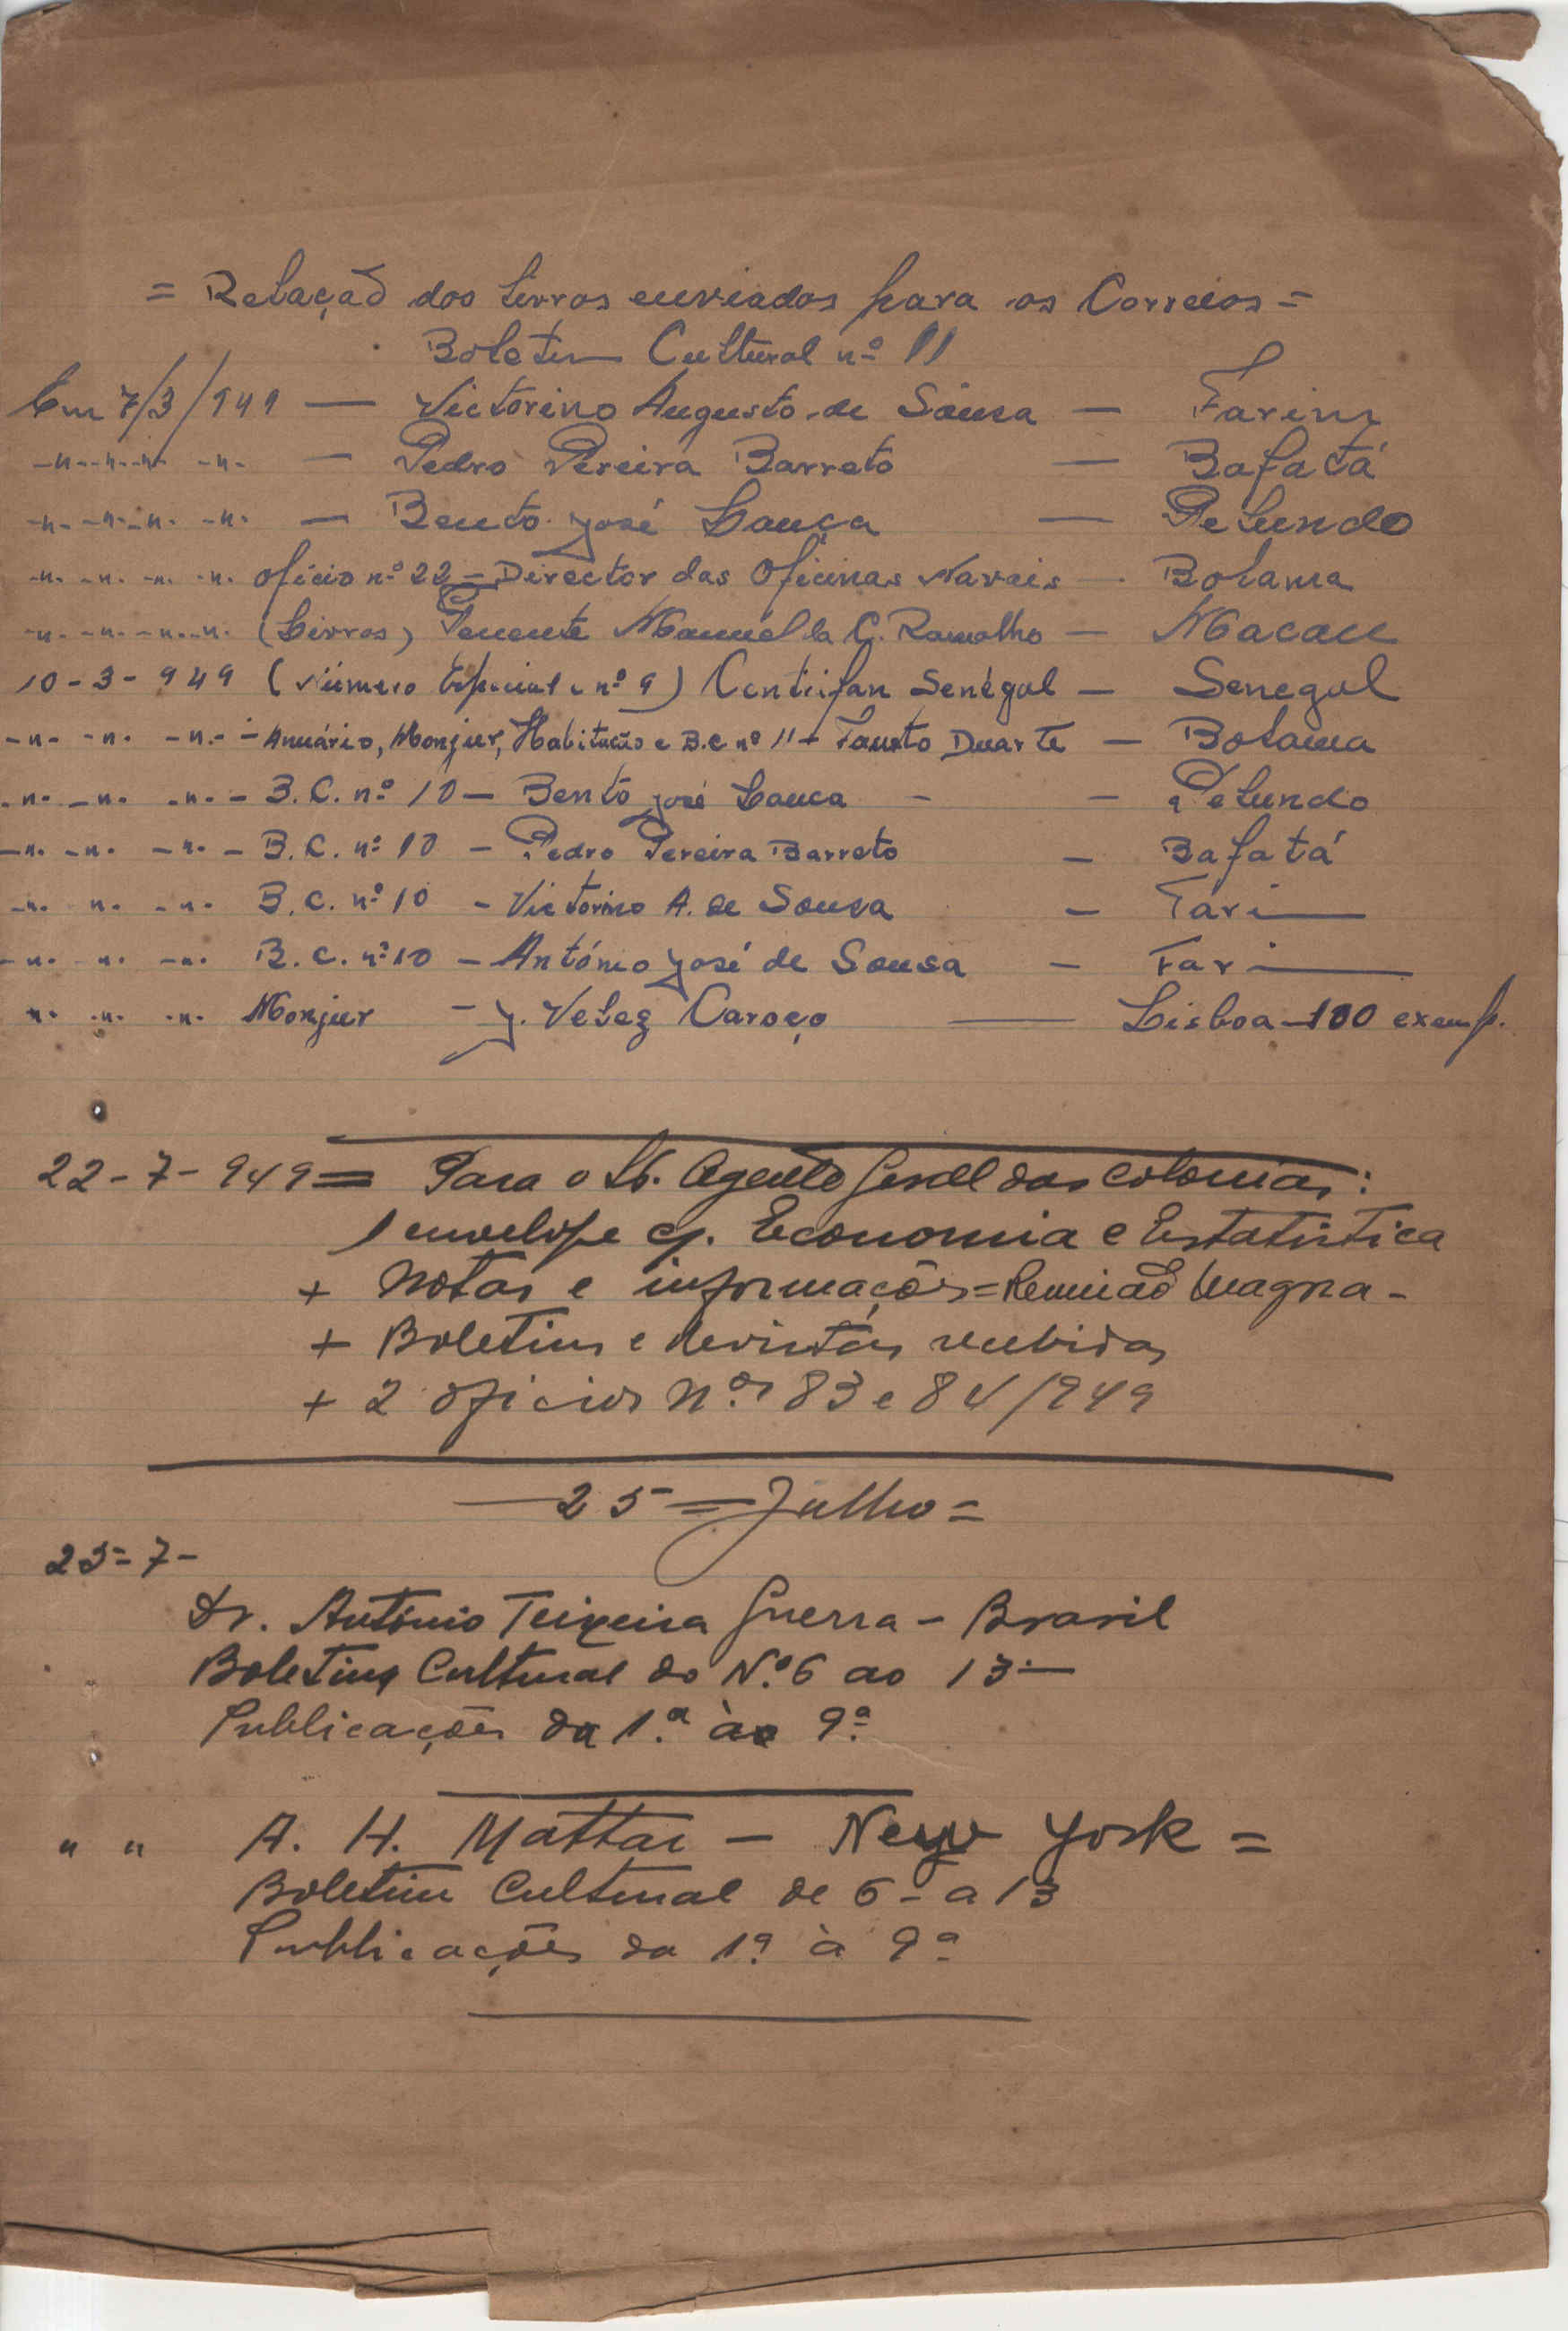 = Relação dos Livros enviados para os Correios =
Boletim Cultural nº 11
Em 7/3/949 — Victorino Augusto de Sousa — Farim
-"-  -"-  -"-  -"- — Pedro Pereira Barreto — Bafatá
-"-  -"-  -"-  -"- — Bento José Lauça — Pelundo
-"-  -"-  -"-  -"- ofício nº 22 — Director das Oficinas Navais — Bolama
-"-  -"-  -"-  -"- (Livros) Tenente Manuel da C. Ramalho — Macau
10-3-949 (Número Especial e nº 9) Centrifan Senégal — Senegal
-"-  -"-  -"- - Anuário, Monjur, Habitação e B.C nº 11 - Fausto Duarte — Bolama
-"-  -"-  -"- - B.C. nº 10 — Bento José Lauca - — Pelundo
-"-  -"-  -"- - B.C. nº 10 - Pedro Pereira Barreto — Bafatá
-"-  -"-  -"- B.C. nº 10 - Victorino A. de Sousa — Farim
-"-  -"-  -"- B.C. nº 10 - António José de Sousa — Farim
-"-  -"-  -"- Monjur - J. Velez Caroço — Lisboa - 100 exemp.
22-7-949 = Para o Sr. Agente Geral das Colonias:
1 envelope c/. Economia e Estatistica
+ Notas e informações = Reunião Magna -
+ Boletins e revistas recebidas
+ 2 oficios Nos 83 e 84/949
— 25 = Julho =
25-7-
Dr. António Teixeira Guerra - Brasil
Boletins Cultural do N.º 6 ao 13 —
Publicações da 1.ª à 9.ª
" " A. H. Mattar - New York =
Boletim Cultural de 6 - a 13
Publicações da 1ª à 9ª